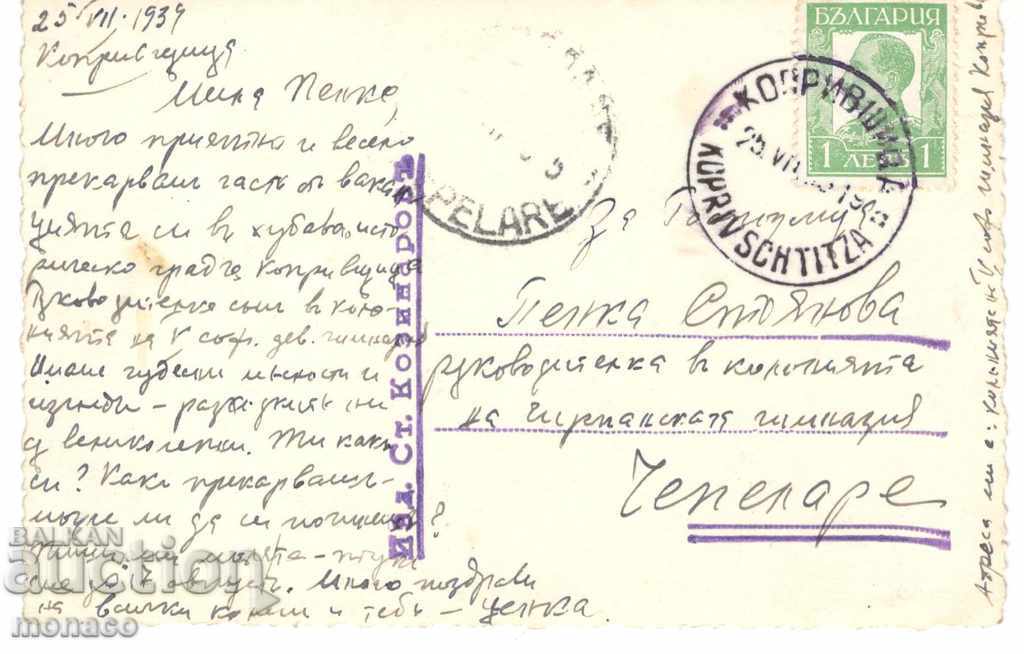 25 VII 1939
Копривщица
Мила Пенке,
Много приятно и весело
прекарвам часть от вакан
цията си въ хубаво, исто
рическо градче Копривщица
Ржководителка съм в коло
нията на V соф. дев. гимназия
Имаме чудесни местности и
изгледи – разходките ни
са великолепни. Ти как
си? Как прекарваш –
може ли да си починеш?
Пиши ми
сме до 17 август. Много поздрави
на всички колеги и тебе – Ценка.
Изд. Ст. Козинаровъ
PELARE
БЪЛГАРИЯ
1 ЛЕВЪ 1
КОПРИВЩИЦА
25. VII
KOPRIVSCHTITZA
За Госпожу
Пенка Стоянова
ржководителка въ колонията
на Чирпанската гимназия
Чепеларе
Адреса ми е: колонията V соф. гимназия Коприв
BALKAN
auction
monaco